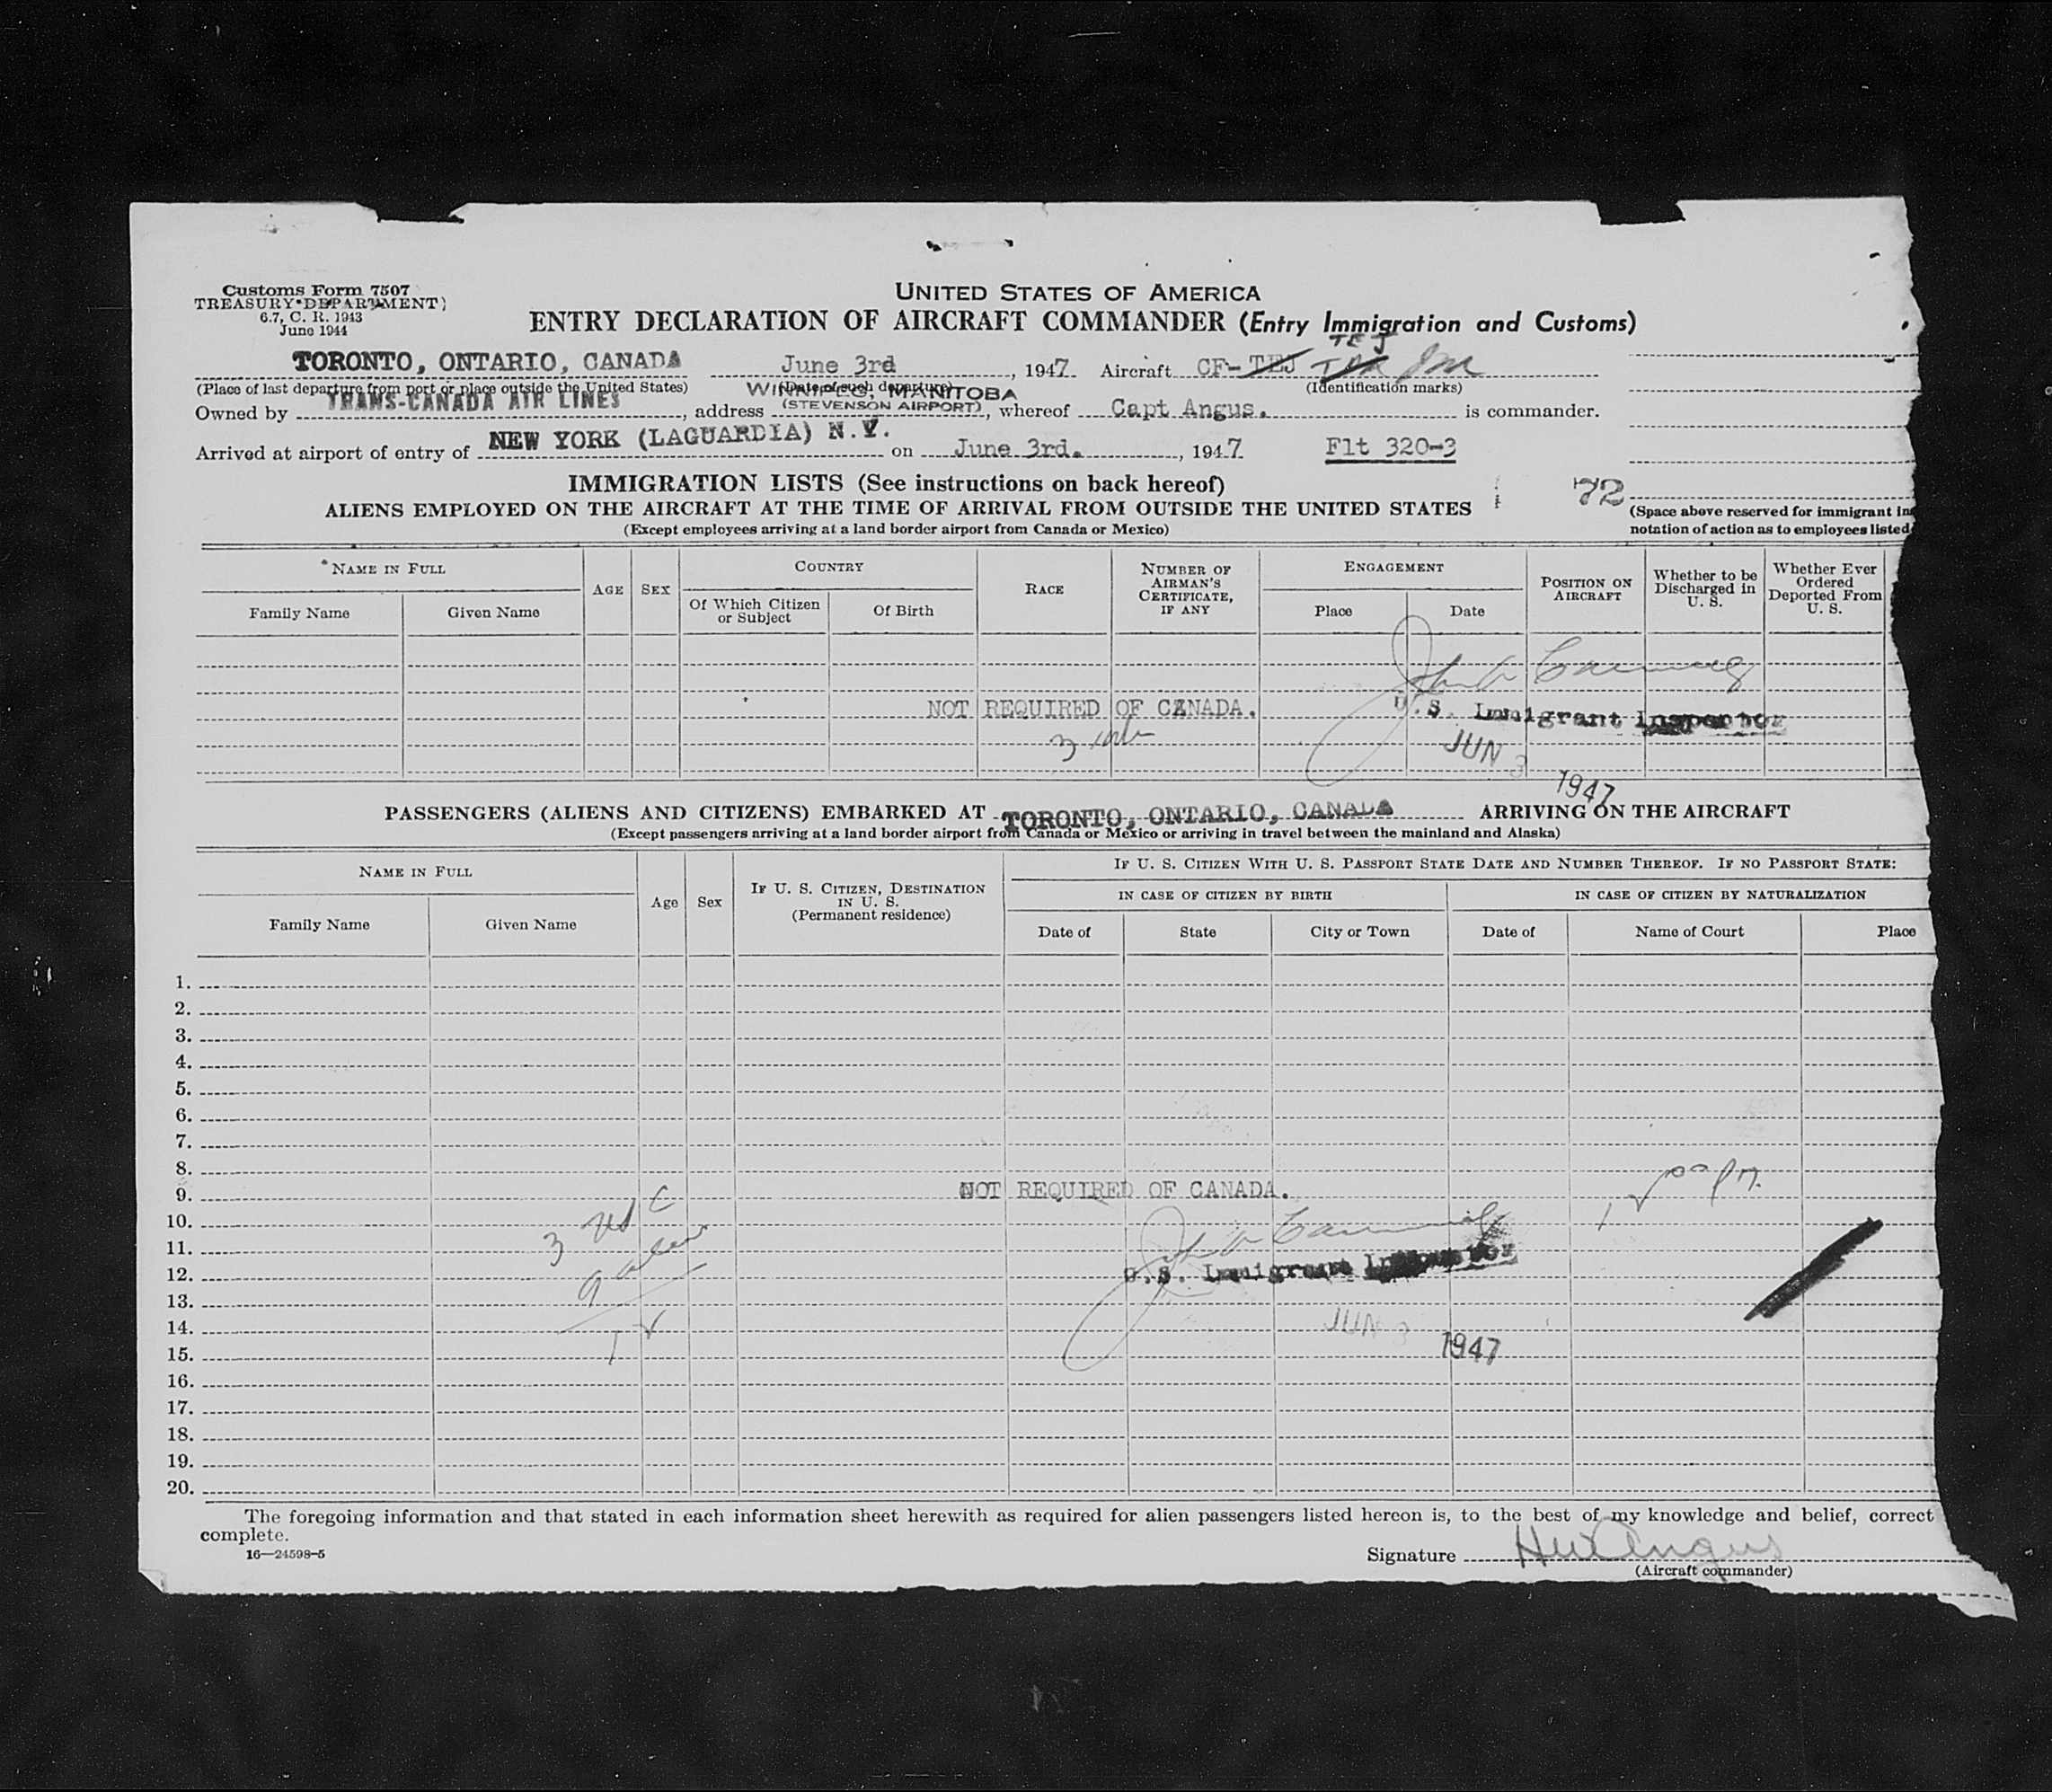 Customs Form 7507
TREASURY DEPARTMENT)
6.7, C. R. 1943
June 1944
UNITED STATES OF AMERICA
ENTRY DECLARATION OF AIRCRAFT COMMANDER (Entry Immigration and Customs)
TEJ
TORONTO, ONTARIO, CANADA June 3rd, 1947 Aircraft CF-TEJ
(Place of last departure from port or place outside the United States) (Date of such departure) (Identification marks)
WINNIPEG, MANITOBA
Owned by TRANS-CANADA AIR LINES, address (STEVENSON AIRPORT), whereof Capt Angus. is commander.
Arrived at airport of entry of NEW YORK (LAGUARDIA) N.Y. on June 3rd., 1947 Flt 320-3
IMMIGRATION LISTS (See instructions on back hereof)
72
ALIENS EMPLOYED ON THE AIRCRAFT AT THE TIME OF ARRIVAL FROM OUTSIDE THE UNITED STATES
(Space above reserved for immigrant in
(Except employees arriving at a land border airport from Canada or Mexico)
notation of action as to employees listed
NAME IN FULL
Family Name
Given Name
AGE
SEX
COUNTRY
Of Which Citizen or Subject
Of Birth
RACE
NUMBER OF AIRMAN'S CERTIFICATE, IF ANY
ENGAGEMENT
Place
Date
POSITION ON AIRCRAFT
Whether to be Discharged in U. S.
Whether Ever Ordered Deported From U. S.
NOT REQUIRED OF CANADA.
U.S. Immigrant Inspector
3
JUN 3 1947
PASSENGERS (ALIENS AND CITIZENS) EMBARKED AT TORONTO, ONTARIO, CANADA ARRIVING ON THE AIRCRAFT
(Except passengers arriving at a land border airport from Canada or Mexico or arriving in travel between the mainland and Alaska)
NAME IN FULL
Family Name
Given Name
Age
Sex
IF U. S. CITIZEN, DESTINATION IN U. S.
(Permanent residence)
IF U. S. CITIZEN WITH U. S. PASSPORT STATE DATE AND NUMBER THEREOF. IF NO PASSPORT STATE:
IN CASE OF CITIZEN BY BIRTH
IN CASE OF CITIZEN BY NATURALIZATION
Date of
State
City or Town
Date of
Name of Court
Place
1.
2.
3.
4.
5.
6.
7.
8.
9. NOT REQUIRED OF CANADA.
10.
3
11.
12. 9 U.S. Immigrant Inspector
13.
14. JUN 3
15. 1947
16.
17.
18.
19.
20.
The foregoing information and that stated in each information sheet herewith as required for alien passengers listed hereon is, to the best of my knowledge and belief, correct
complete.
16—24598-5
Signature HW Angus
(Aircraft commander)